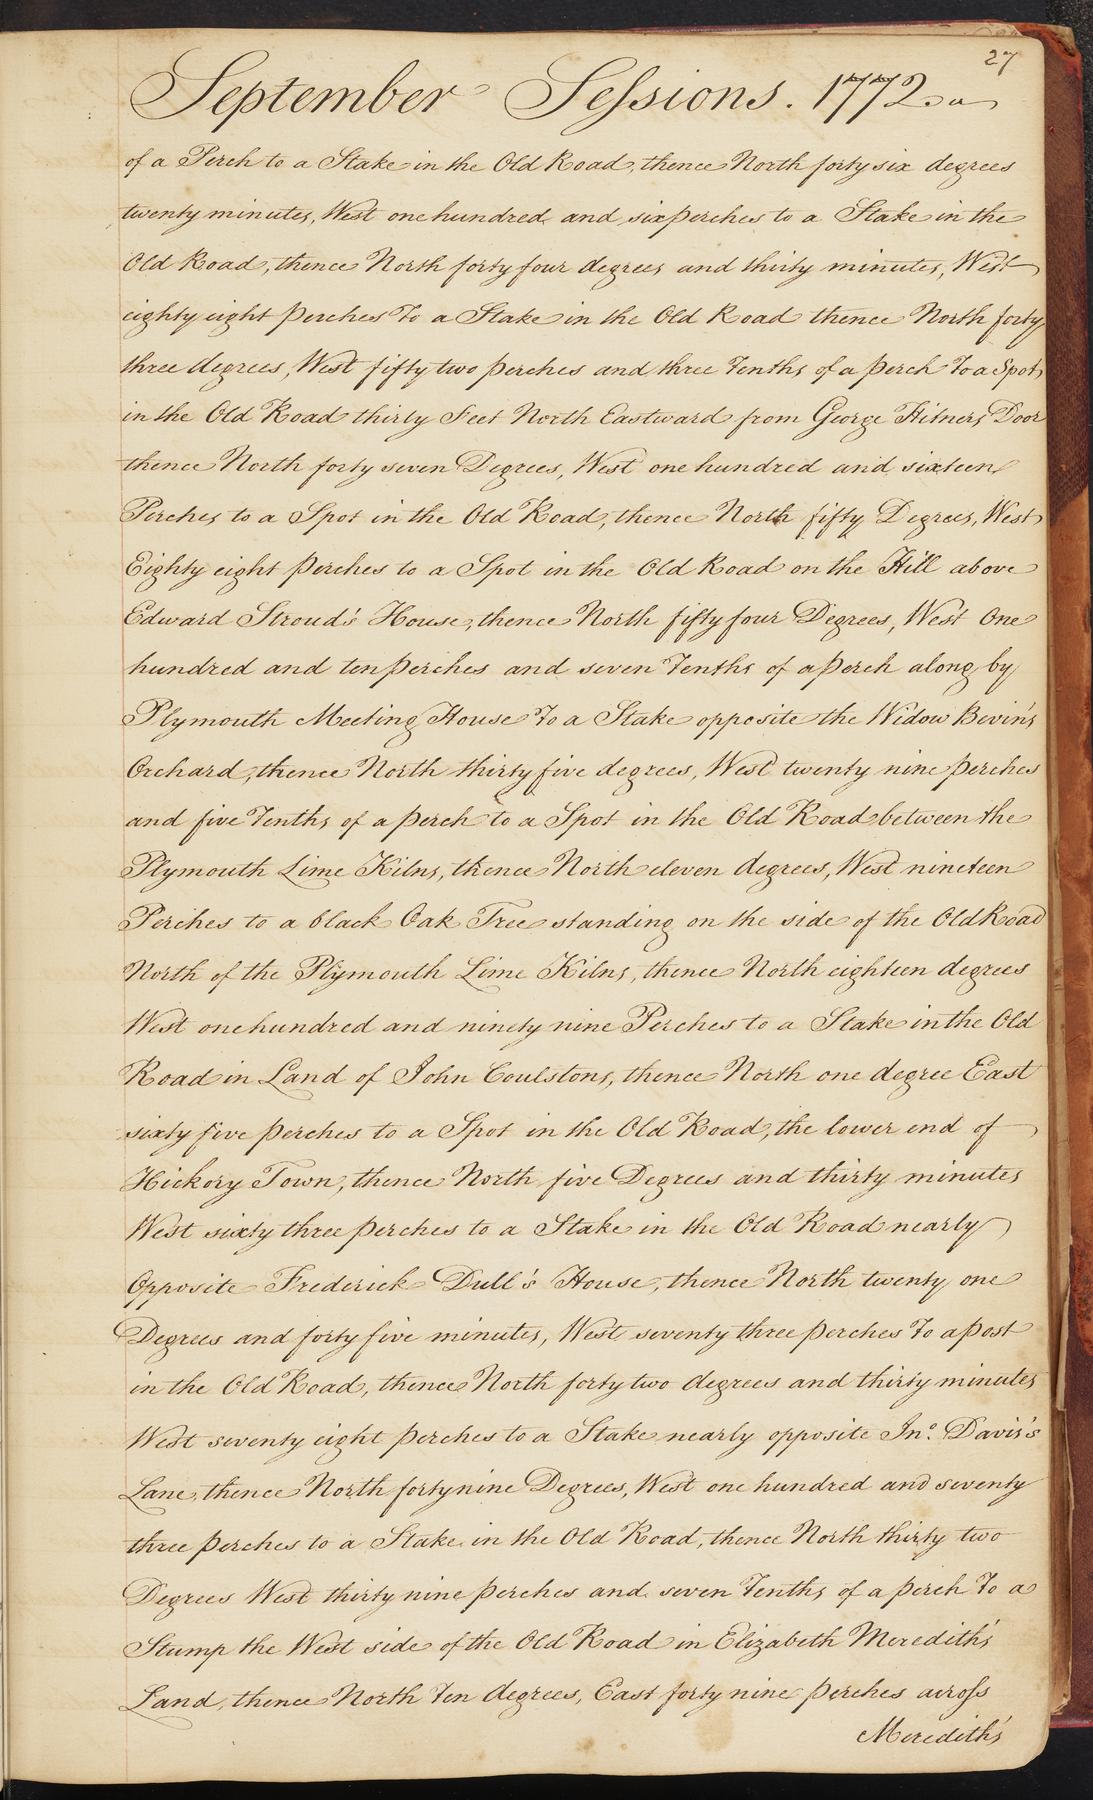 27
September Sessions. 1772
of a Perch to a Stake in the Old Road, thence North forty six degrees
twenty minutes, West one hundred and six perches to a Stake in the
Old Road, thence North forty four degrees and thirty minutes, West
eighty eight perches To a Stake in the Old Road thence North forty
three degrees, West fifty two perches and three Tenths of a perch To a Spot
in the Old Road thirty Feet North Eastward from George Hitners Door
thence North forty seven Degrees, West one hundred and sixteen
Perches to a Spot in the Old Road, thence North fifty Degrees, West
Eighty eight perches to a Spot in the Old Road on the Hill above
Edward Stroud's House, thence North fifty four Degrees, West One
hundred and ten perches and seven Tenths of a perch along by
Plymouth Meeting House To a Stake opposite the Widow Bevin's
Orchard, thence North thirty five degrees, West twenty nine perches
and five Tenths of a perch to a Spot in the Old Road between the
Plymouth Lime Kilns, thence North eleven degrees, West nineteen
Perches to a black Oak Tree standing on the side of the Old Road
North of the Plymouth Lime Kilns, thence North eighteen degrees
West one hundred and ninety nine Perches to a Stake in the Old
Road in Land of John Coulstons, thence North one degree East
sixty five perches to a Spot in the Old Road, the lower end of
Hickory Town, thence North five Degrees and thirty minutes
West sixty three perches to a Stake in the Old Road nearly
Opposite Frederick Dull's House, thence North twenty one
Degrees and forty five minutes, West seventy three perches To a post
in the Old Road, thence North forty two degrees and thirty minutes
West seventy eight perches to a Stake nearly opposite Jno. Davis's
Lane, thence North forty nine Degrees, West one hundred and seventy
three perches to a Stake in the Old Road, thence North thirty two
Degrees West thirty nine perches and seven Tenths of a perch To a
Stump the West side of the Old Road in Elizabeth Meredith's
Land, thence North Ten degrees, East forty nine perches across
Meredith's